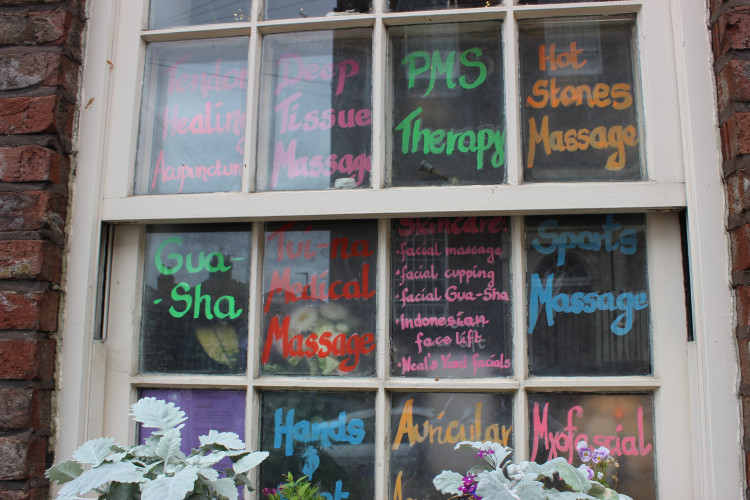 Tendon
Healing
Acupuncture
Deep
Tissue
Massage
PMS
Therapy
Hot
Stones
Massage
Gua-
-Sha
Tui-na
Medical
Massage
Skincare:
• facial massage
• facial cupping
• facial Gua-Sha
• Indonesian
face lift
• Neal's Yard facials
Sports
Massage
Hands
&
Auricular
Myofascial